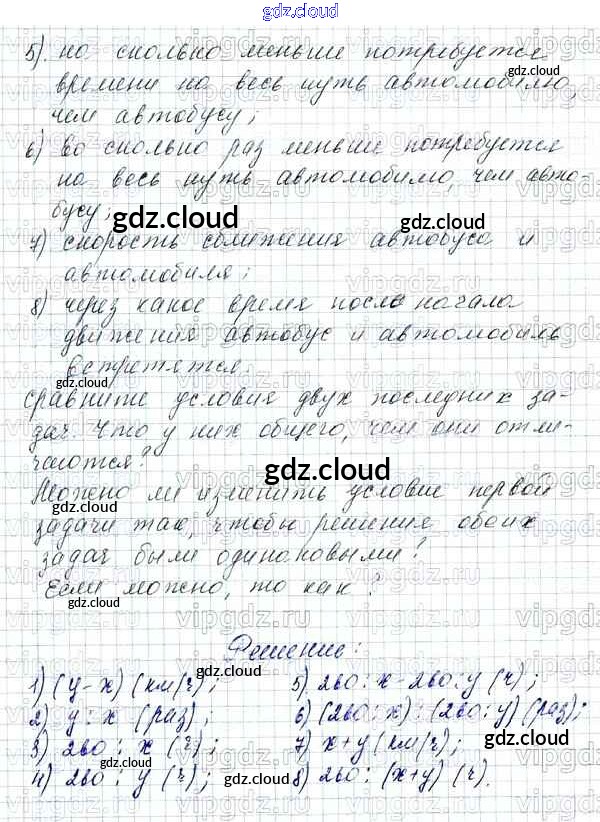 gdz.cloud
5). на сколько меньше потребуется
времени на весь путь автомобилю
чем автобусу;
6) Во сколько раз меньше потребуется
на весь путь автомобилю, чем авто-
бусу;
7) скорость сближения автобуса и
автомобиля;
8) через какое время после начала
движения автобус и автомобиль
встретятся.
Сравните условия двух последних за-
дач. Что у них общего, чем они отли-
чаются?
Можно ли изменить условие первой
задачи так, чтобы решения обоих
задач были одинаковыми?
Если можно, то как?
Решение:
1) (y-x) (км/ч);
2) y : x (раз);
3) 260 : x (ч);
4) 260 : y (ч);
5) 260 : x - 260 : y (ч);
6) (260 : x) : (260 : y) (раз);
7) x+y (км/ч);
8) 260 : (x+y) (ч).